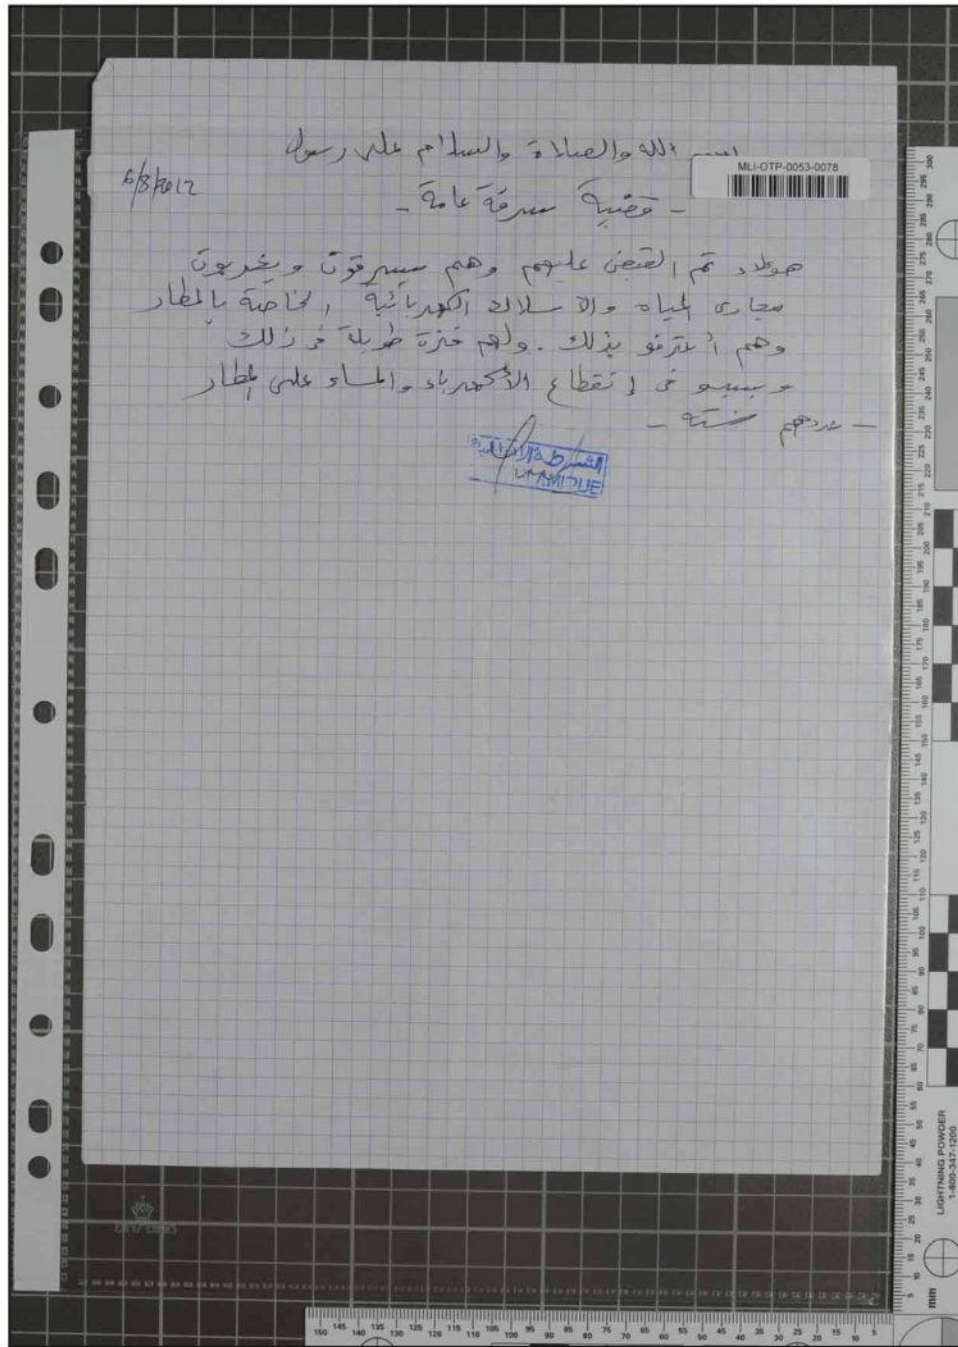 بسم الله والصلاة والسلام على رسول
MLI-OTP-0053-0078
6/8/2012
- قضية سرقة عامة -
هولاء تم القبض عليهم وهم يسرقون ويخربون
مجارى المياه والاسلاك الكهربائية الخاصة بالمطار
وهم أعترفو بذلك. ولهم فترة طويلة فى ذلك
و سببو فى إنقطاع الأكهرباء والماء على المطار
- عددهم ستة -
الشرطة الإسلامية
LIGHTNING POWDER
1-800-347-1200
mm